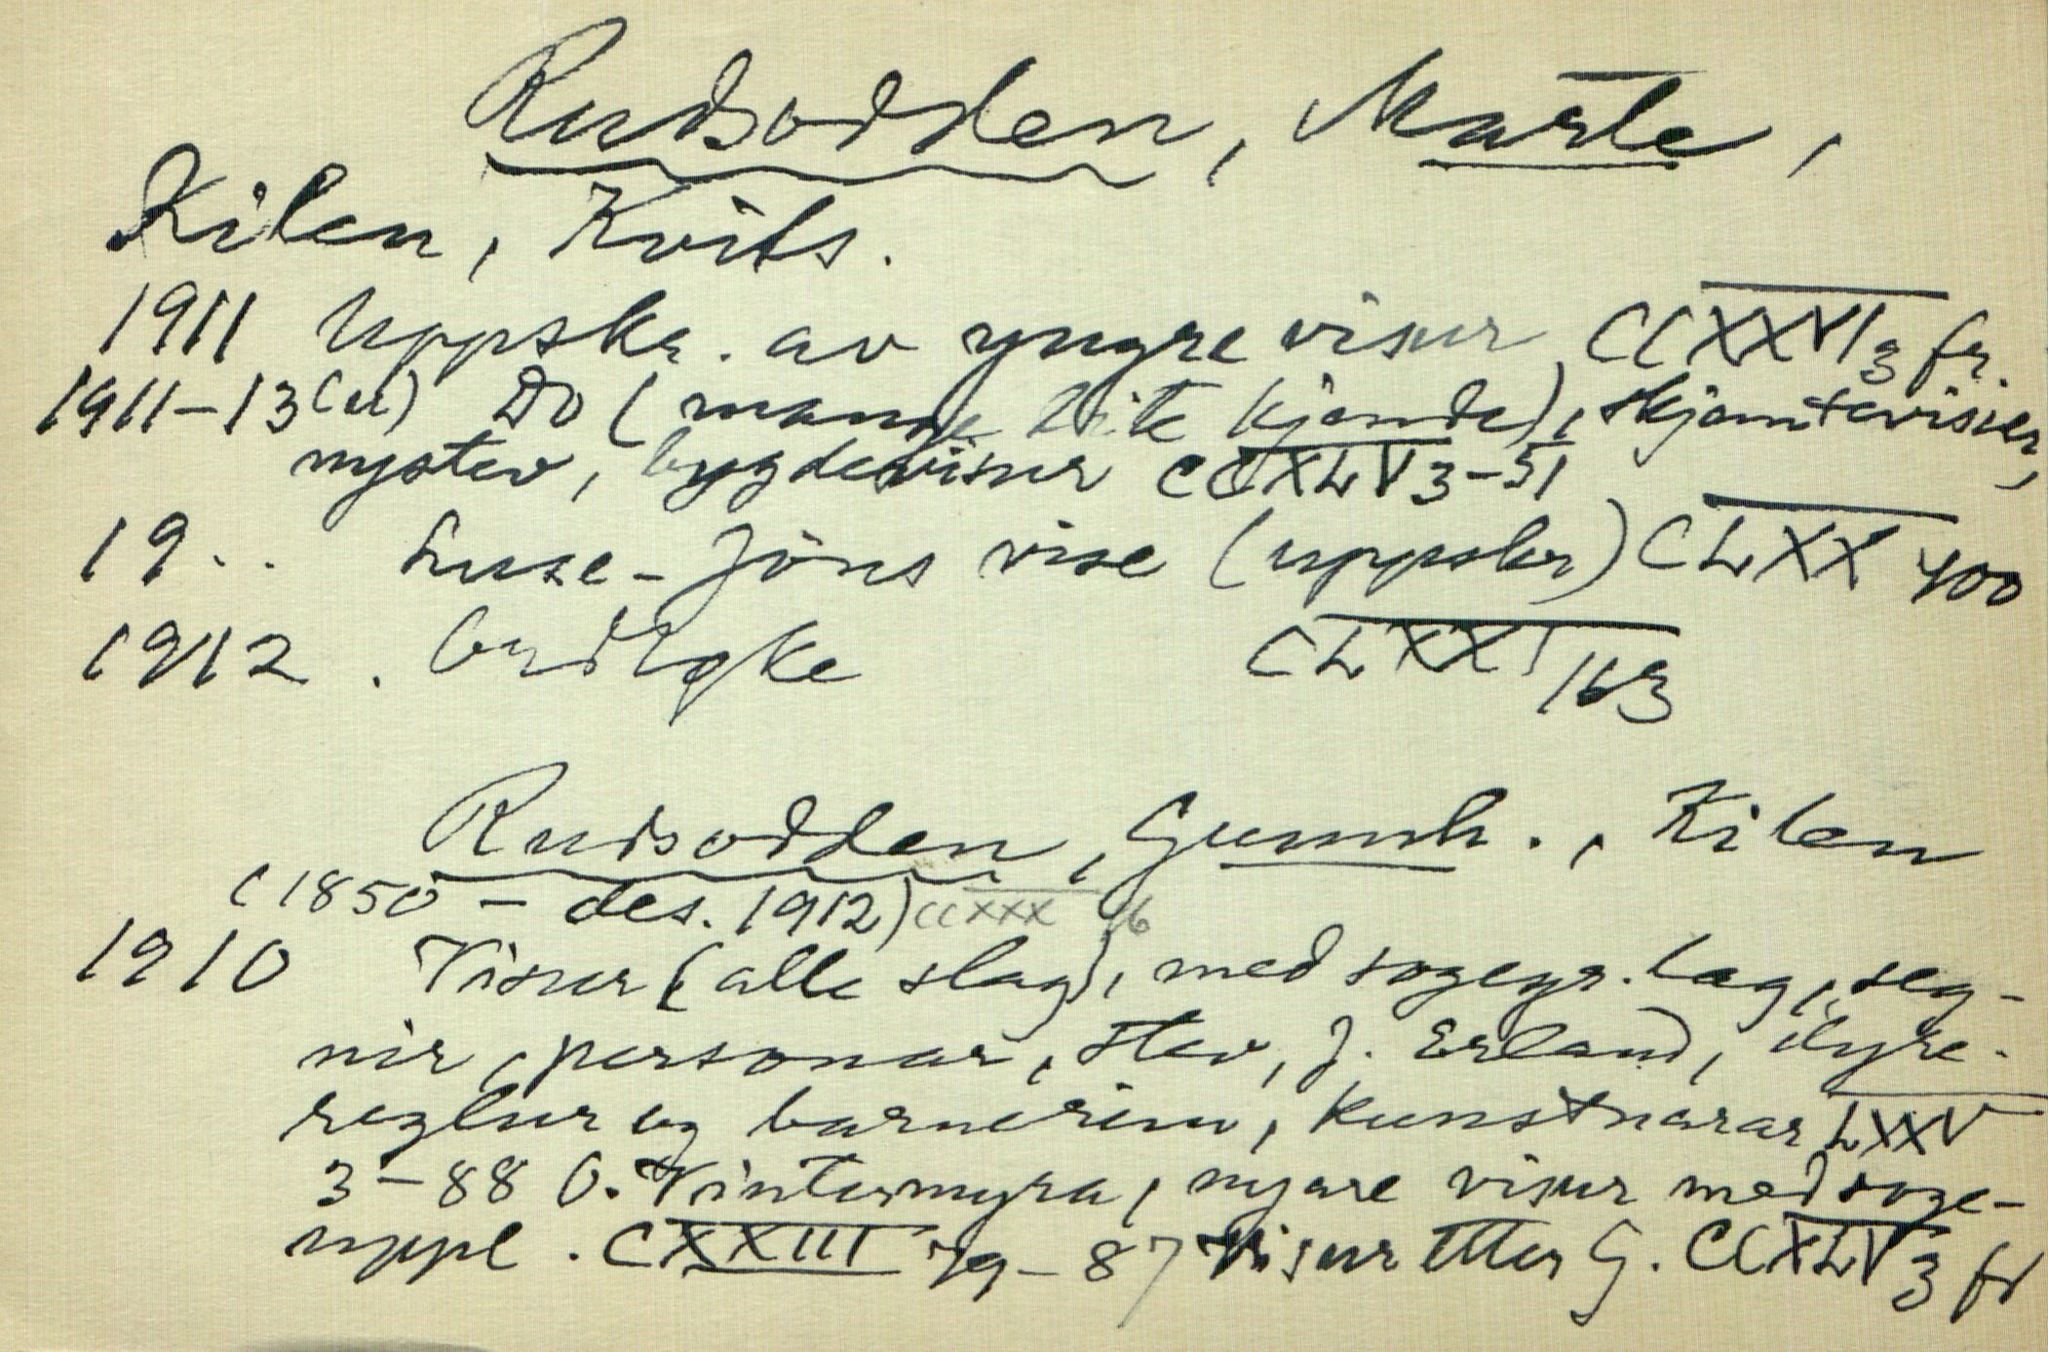 Rudsodden, Marte,
Kilen, Kvits.
1911 Uppskr. av yngre visur CCXXVI 3 fr.
1911-13 (u) Do (mange lite kjende), skjemtevisur,
nystev, bygdevisur CCXLV 3-51
19.. Luse-Jöns vise (uppskr) CLXX 400
1912. Ordtøke CLXXI 163
Rudsodden, Gunnh., Kilen
(1850 - des. 1912) CCXXX 16
1910 Visur (alle slag), med sogegr. lag, seg-
nir, personar, stev, J. Erland, dyre-
reglur og barnerim, kunstnarar LXXV
3-88 O. Vintermyra, nyare visur med soge-
uppl. CXXIII 79-87 Visur etter G. CCXLV 3 fr